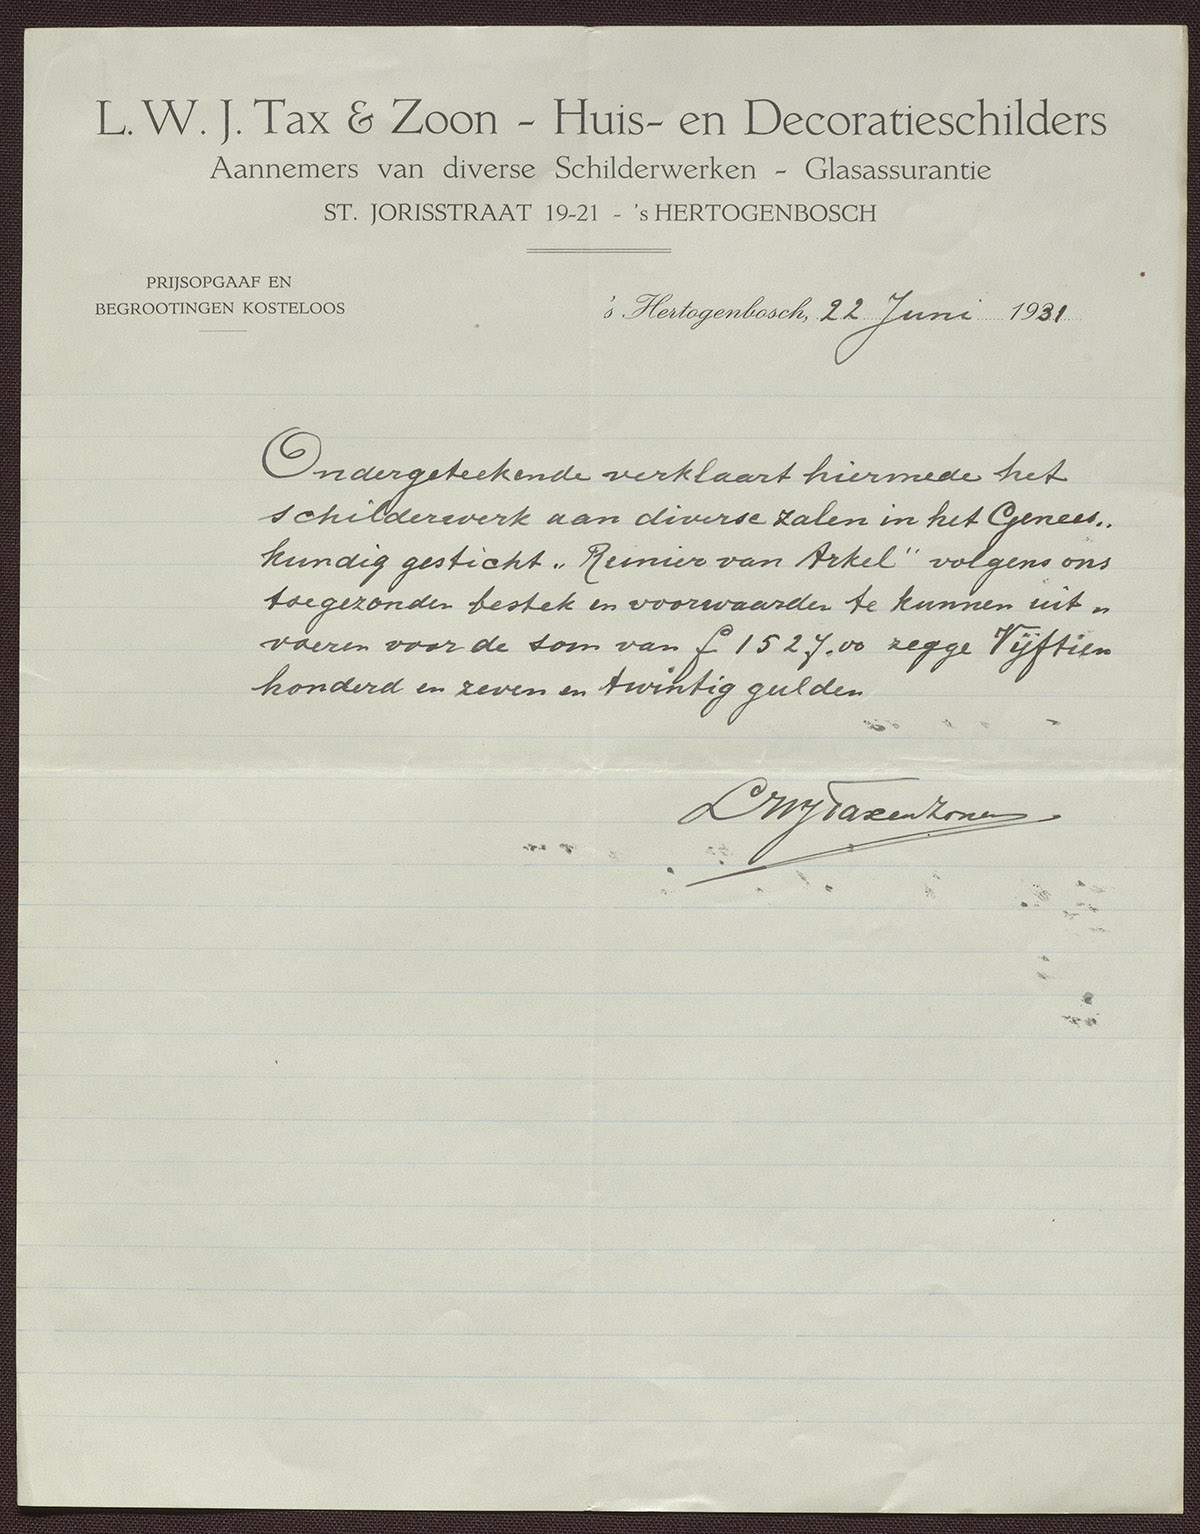 L. W. J. Tax & Zoon - Huis- en Decoratieschilders
Aannemers van diverse Schilderwerken - Glasassurantie
ST. JORISSTRAAT 19-21 - 's HERTOGENBOSCH
PRIJSOPGAAF EN
BEGROOTINGEN KOSTELOOS
's Hertogenbosch, 22 Juni 1931
Ondergeteekende verklaart hiermede het
schilderwerk aan diverse zalen in het Genees„
kundig gesticht „Reinier van Arkel" volgens ons
toegezonden bestek en voorwaarden te kunnen uit„
voeren voor de som van f 1527.00 zegge Vijftien
honderd en zeven en twintig gulden
LWJTax en Zonen